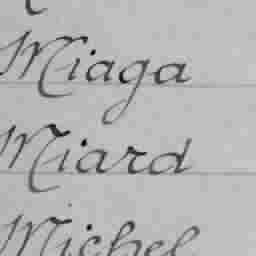 Miaga
Miard
Michel